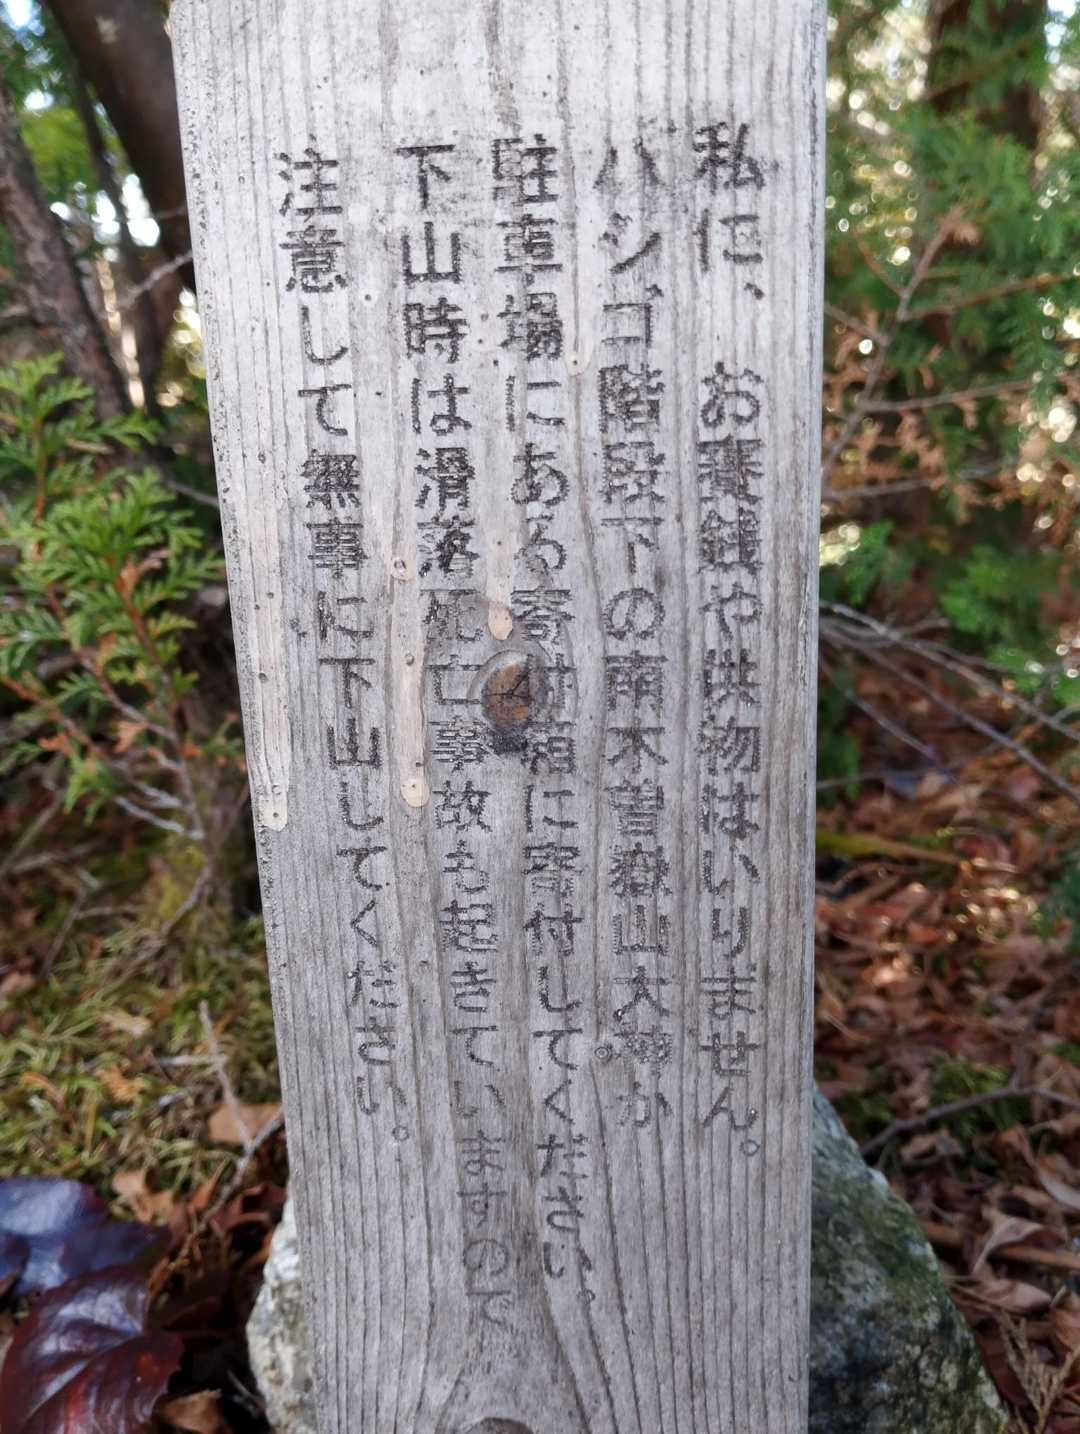 私に、お賽銭や供物はいりません。
ハシゴ階段下の南木曽嶽山大神か
駐車場にある寄付箱に寄付してください。
下山時は滑落死亡事故も起きていますので
注意して無事に下山してください。